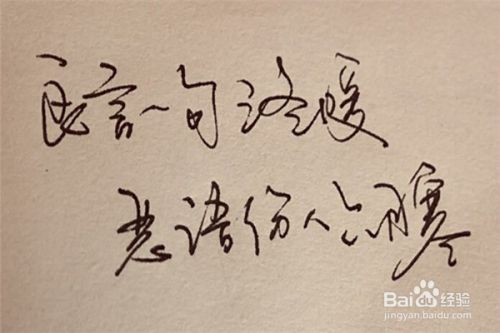 良言一句三冬暖
恶语伤人六月寒
Baidu 经验
jingyan.baidu.com